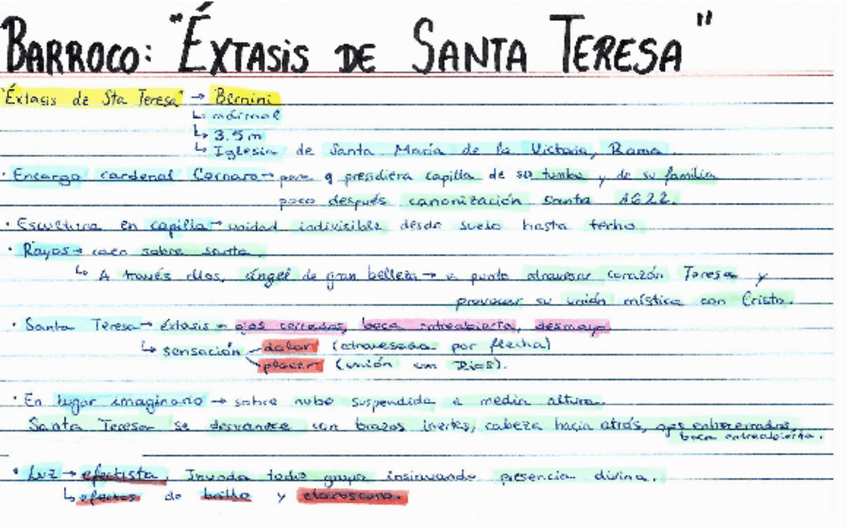 BARROCO: "ÉXTASIS DE SANTA TERESA"
"Éxtasis de Sta Teresa" → Bernini
↳ mármol
↳ 3.5 m
↳ Iglesia de Santa María de la Victoria, Roma.
· Encargo cardenal Cornaro → para q presidiera capilla de su tumba y de su familia
poco después canonización santa 1622.
· Escultura en capilla → unidad indivisible desde suelo hasta techo
· Rayos → caen sobre santa.
↳ A través ellos, ángel de gran belleza → a punto atravesar corazón Teresa y
provocar su unión mística con Cristo.
· Santa Teresa → éxtasis → ojos cerrados, boca entreabierta, desmayo
↳ sensación dolor (atravesada por flecha)
placer (unión con Dios).
· En lugar imaginario → sobre nube suspendida a media altura.
Santa Teresa se desvanece con brazos inertes, cabeza hacia atrás, ojos entrecerrados,
boca entreabierta.
· Luz → efectista. Invade todo grupo insinuando presencia divina.
↳ efectos de brillo y claroscuro.